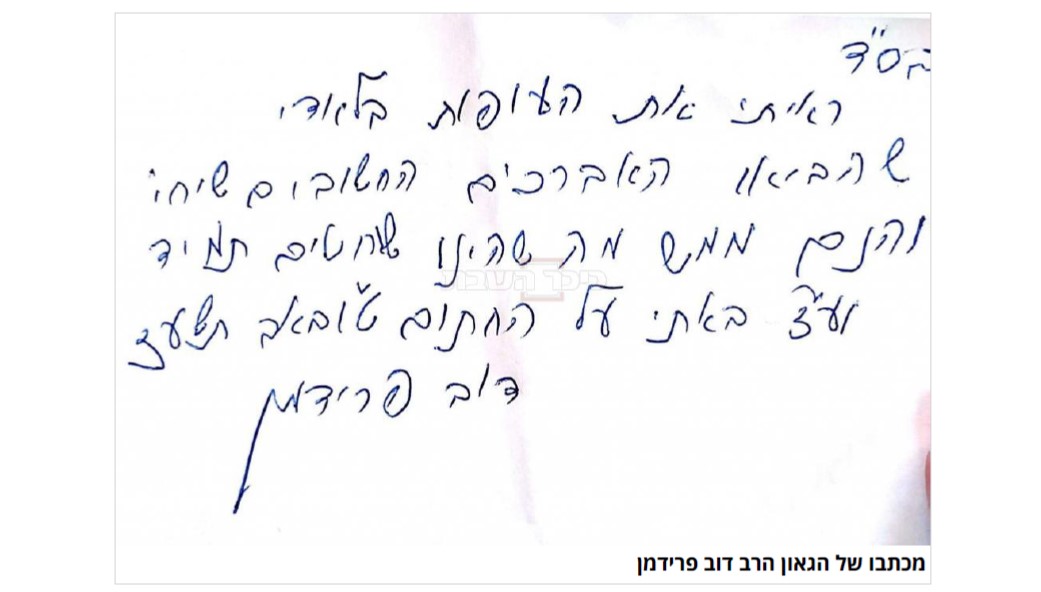 בס"ד
ראיתי את העופות בלאדי
שהביאו האברכים החשובים שיחי'
והנם ממש מה שהינו שוחטים תמיד
וע"ז באתי על החתום ט"ו באב תשע"ז
דוב פרידמן
כיכר השבת
מכתבו של הגאון הרב דוב פרידמן